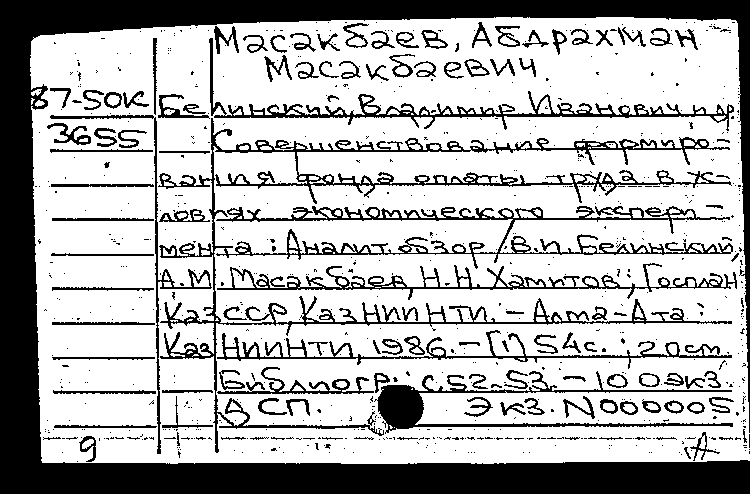 Масакбаев, Абдрахман
Масакбаевич.
87-50К Белинский, Владимир Иванович и др.
3655 Совершенствование формиро-
вания фонда оплаты труда в ус-
ловиях экономического экспери-
мента : Аналит. обзор / В.И. Белинский,
А.М. Масакбаев, Н.Н. Хамитов ; Госплан
КазССР, КазНИИНТИ. – Алма-Ата :
КазНИИНТИ, 1986. – [1], 54с. ; 20см.
Библиогр.: с.52-53. – 100экз.
ДСП. Экз. N000005.
9 А